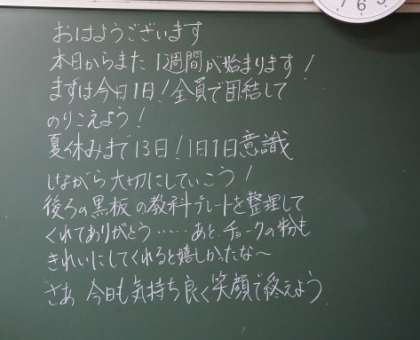 おはようございます
本日からまた1週間が始まります!
まずは今日1日!全員で団結して
のりこえよう!
夏休みまで13日!1日1日意識
しながら大切にしていこう!
後ろの黒板の教科プレートを整理して
くれてありがとう……あと、チョークの粉も
きれいにしてくれると嬉しかったな〜
さあ 今日も気持ち良く笑顔で終えよう
7 6 5